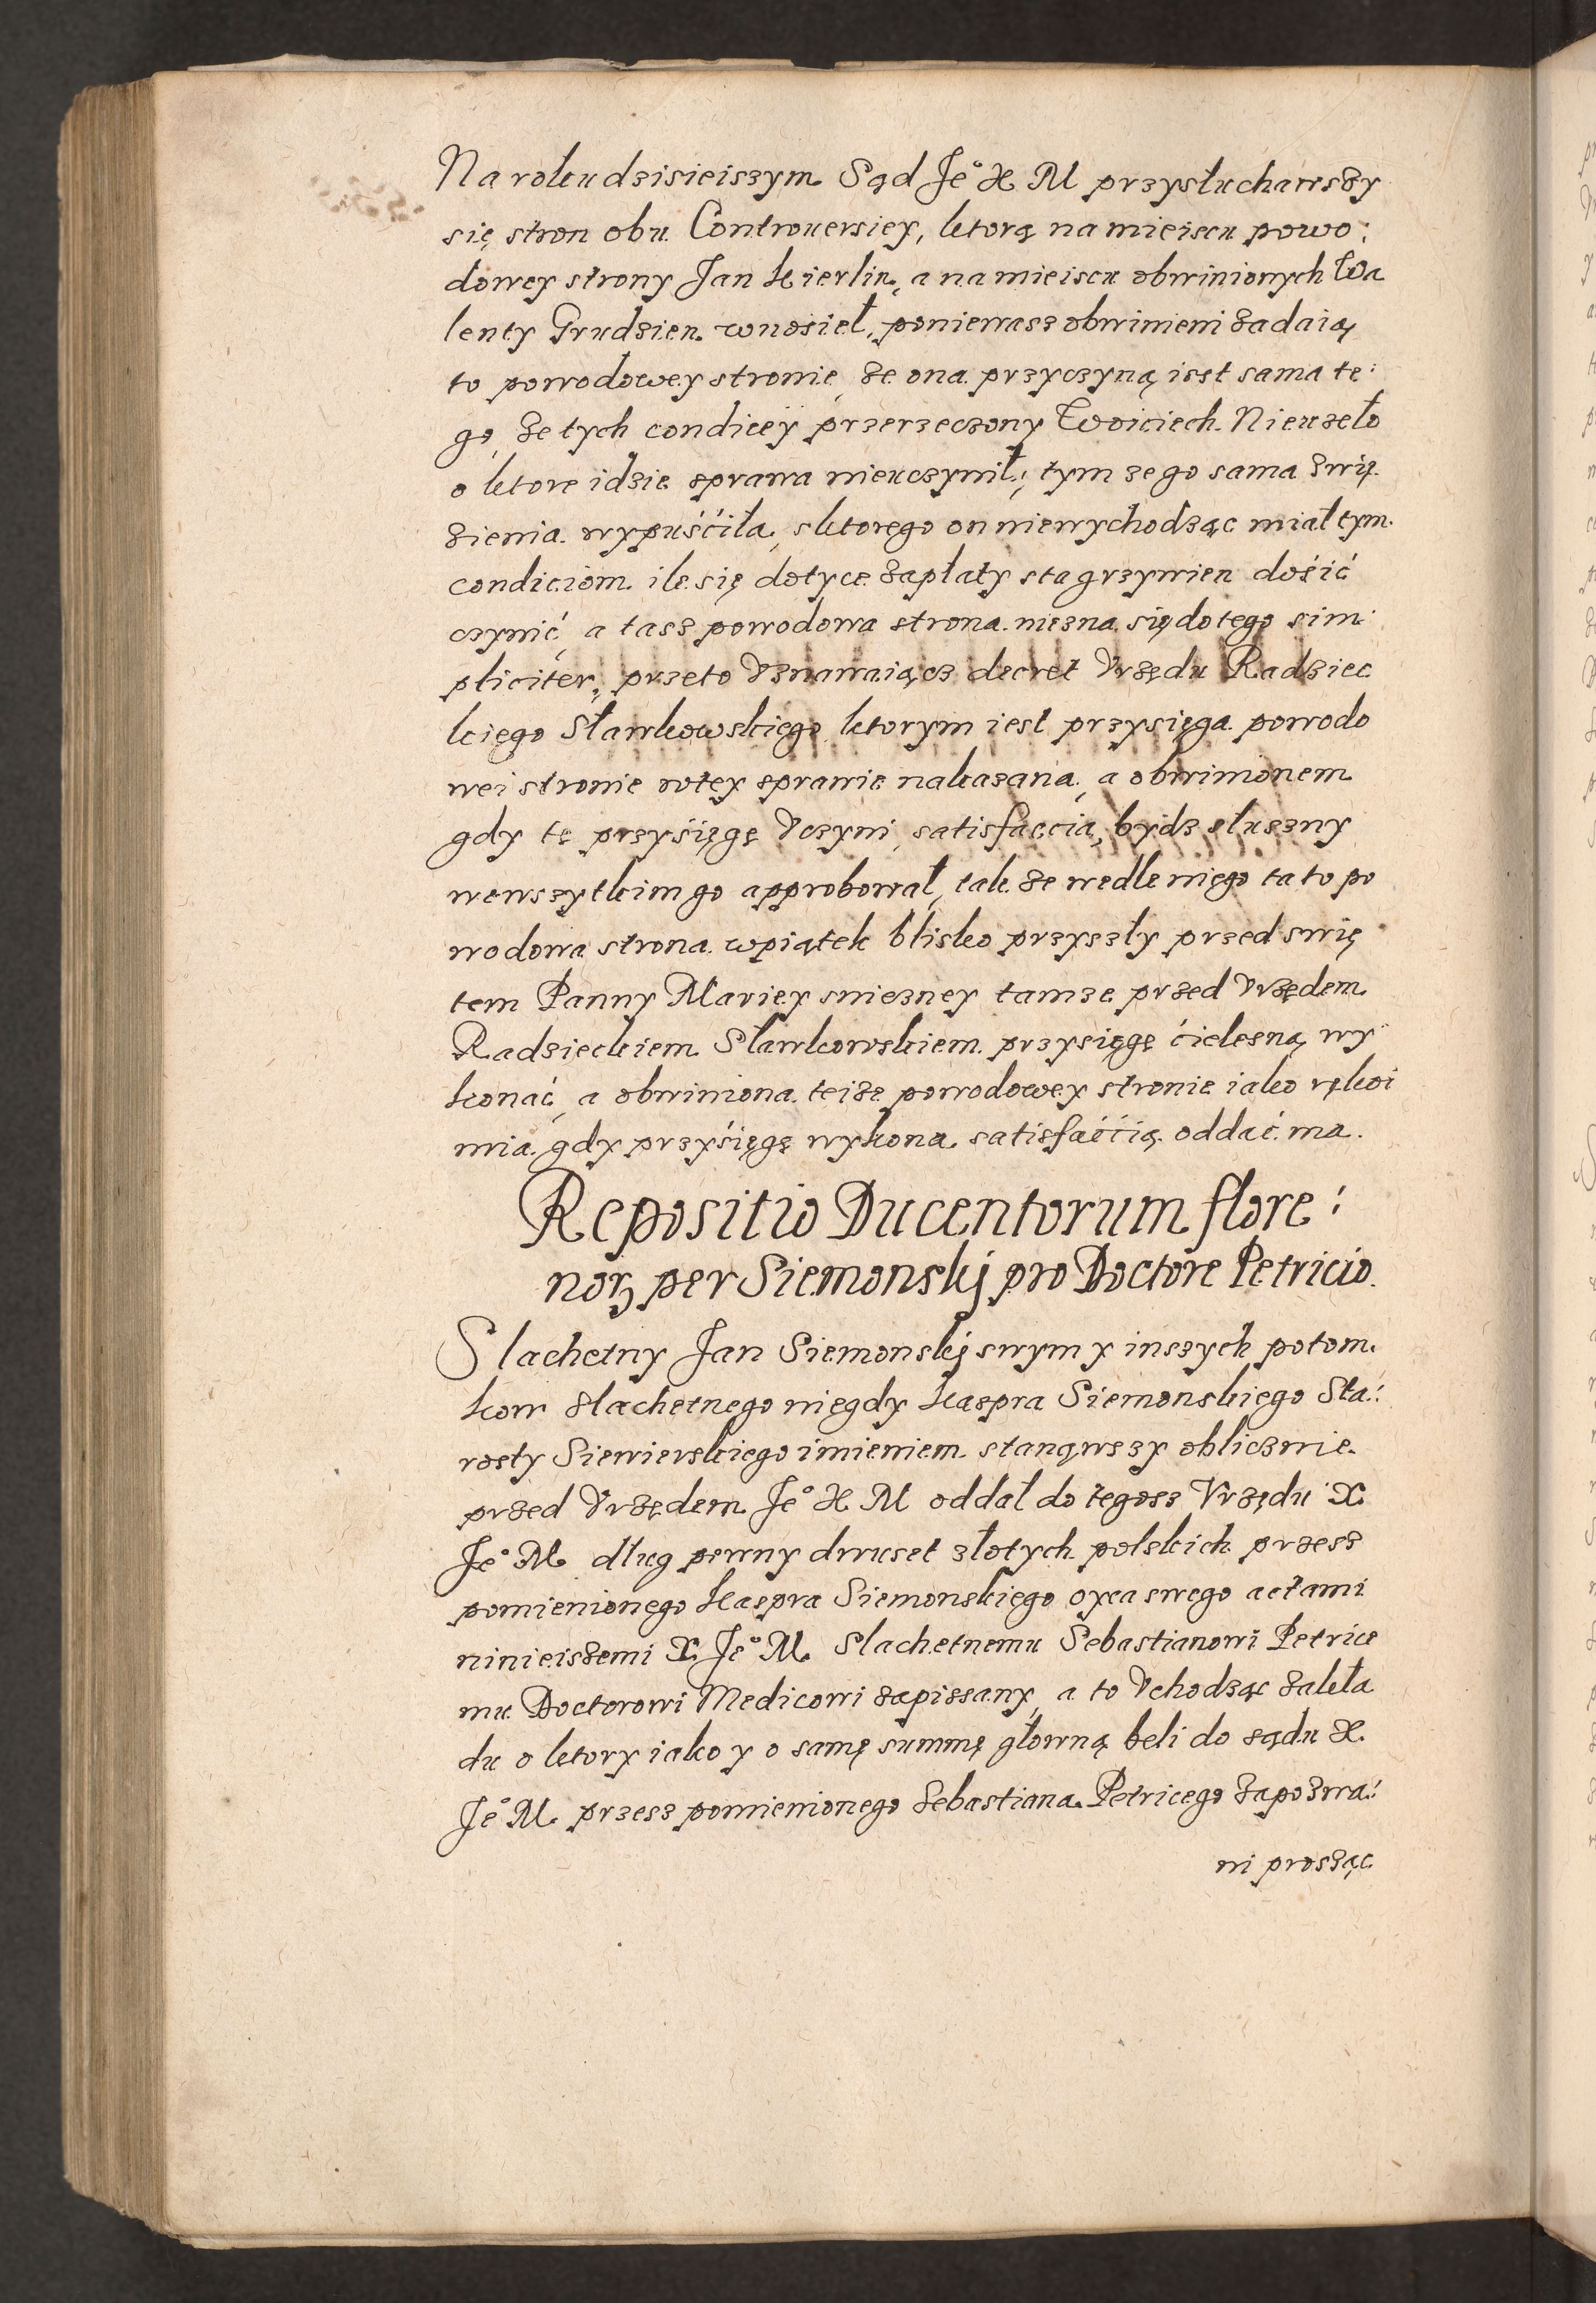 Na roku dzisieiszym Sąd Je° X M przysłuchawszy
się stron obu Controuersiey, ktorą na mieiscu powo:
dowey strony Jan Kierlin, a na mieiscu obwinionych Wa
lenty Grudzien wnosieł, poniewasz obwinieni zadaią
to powodowey stronie, że ona przyczyną iest sama te:
go, że tych condiceÿ przerzeczony Woiciech Niewzeło
o ktore idzie sprawa nieuczynił, tym ze go sama zwię
zienia wypuściła, sktorego on niewychodząc miał tym
condiciom ile się dotyce zapłaty sta grzywien dośić
czynić, a tasz powodowa strona niezna się do tego sim
pliciter, przeto Vznawaiącz decret Vrzędu Radziec
kiego Sławkowskiego ktorym iest przysięga powodo
wei stronie wtey sprawie nakazana, a obwinionem
gdy tę przysięgę Vczyni, satisfaccia, bydz słuszny
wewszytkim go approbował, tak że wedle niego ta to po
wodowa strona wpiątek blisko przyszły przed swię
tem Panny Mariey sniezney tamze przed Vrzędem
Radzieckiem Sławkowskiem przysięgę ćielesną wy
konać, a obwiniona teize powodowey stronie iako rękoi
mia gdy przyśięgę wykona satisfaććią oddać ma.
Repositio Ducentorum flore:
noꝝ per Siemonskj pro Doctore Petricio
Slachetny Jan Siemonskj swym y inszych potom
kow slachetnego niegdy Kaspra Siemonskiego Sta:
rosty Siewierskiego imieniem stanąwszy obliczwie
przed Vrzędem Je° X M oddał do tegosz Vrzędu X
Je° M dług pewny dwuset złotych polskich przesz
pomienionego Kaspra Siemonskiego oyca swego actami
ninieiszemi X Je° M Slachetnemu Sebastianowi Petrice
mu Doctorowi Medicowi zapissany, a to Vchodząc zakła
du o ktory iako y o samę summę głowną beli do sądu X
Je° M przesz pomienionego Sebastiana Petricego zapozwa:
ni prosząc